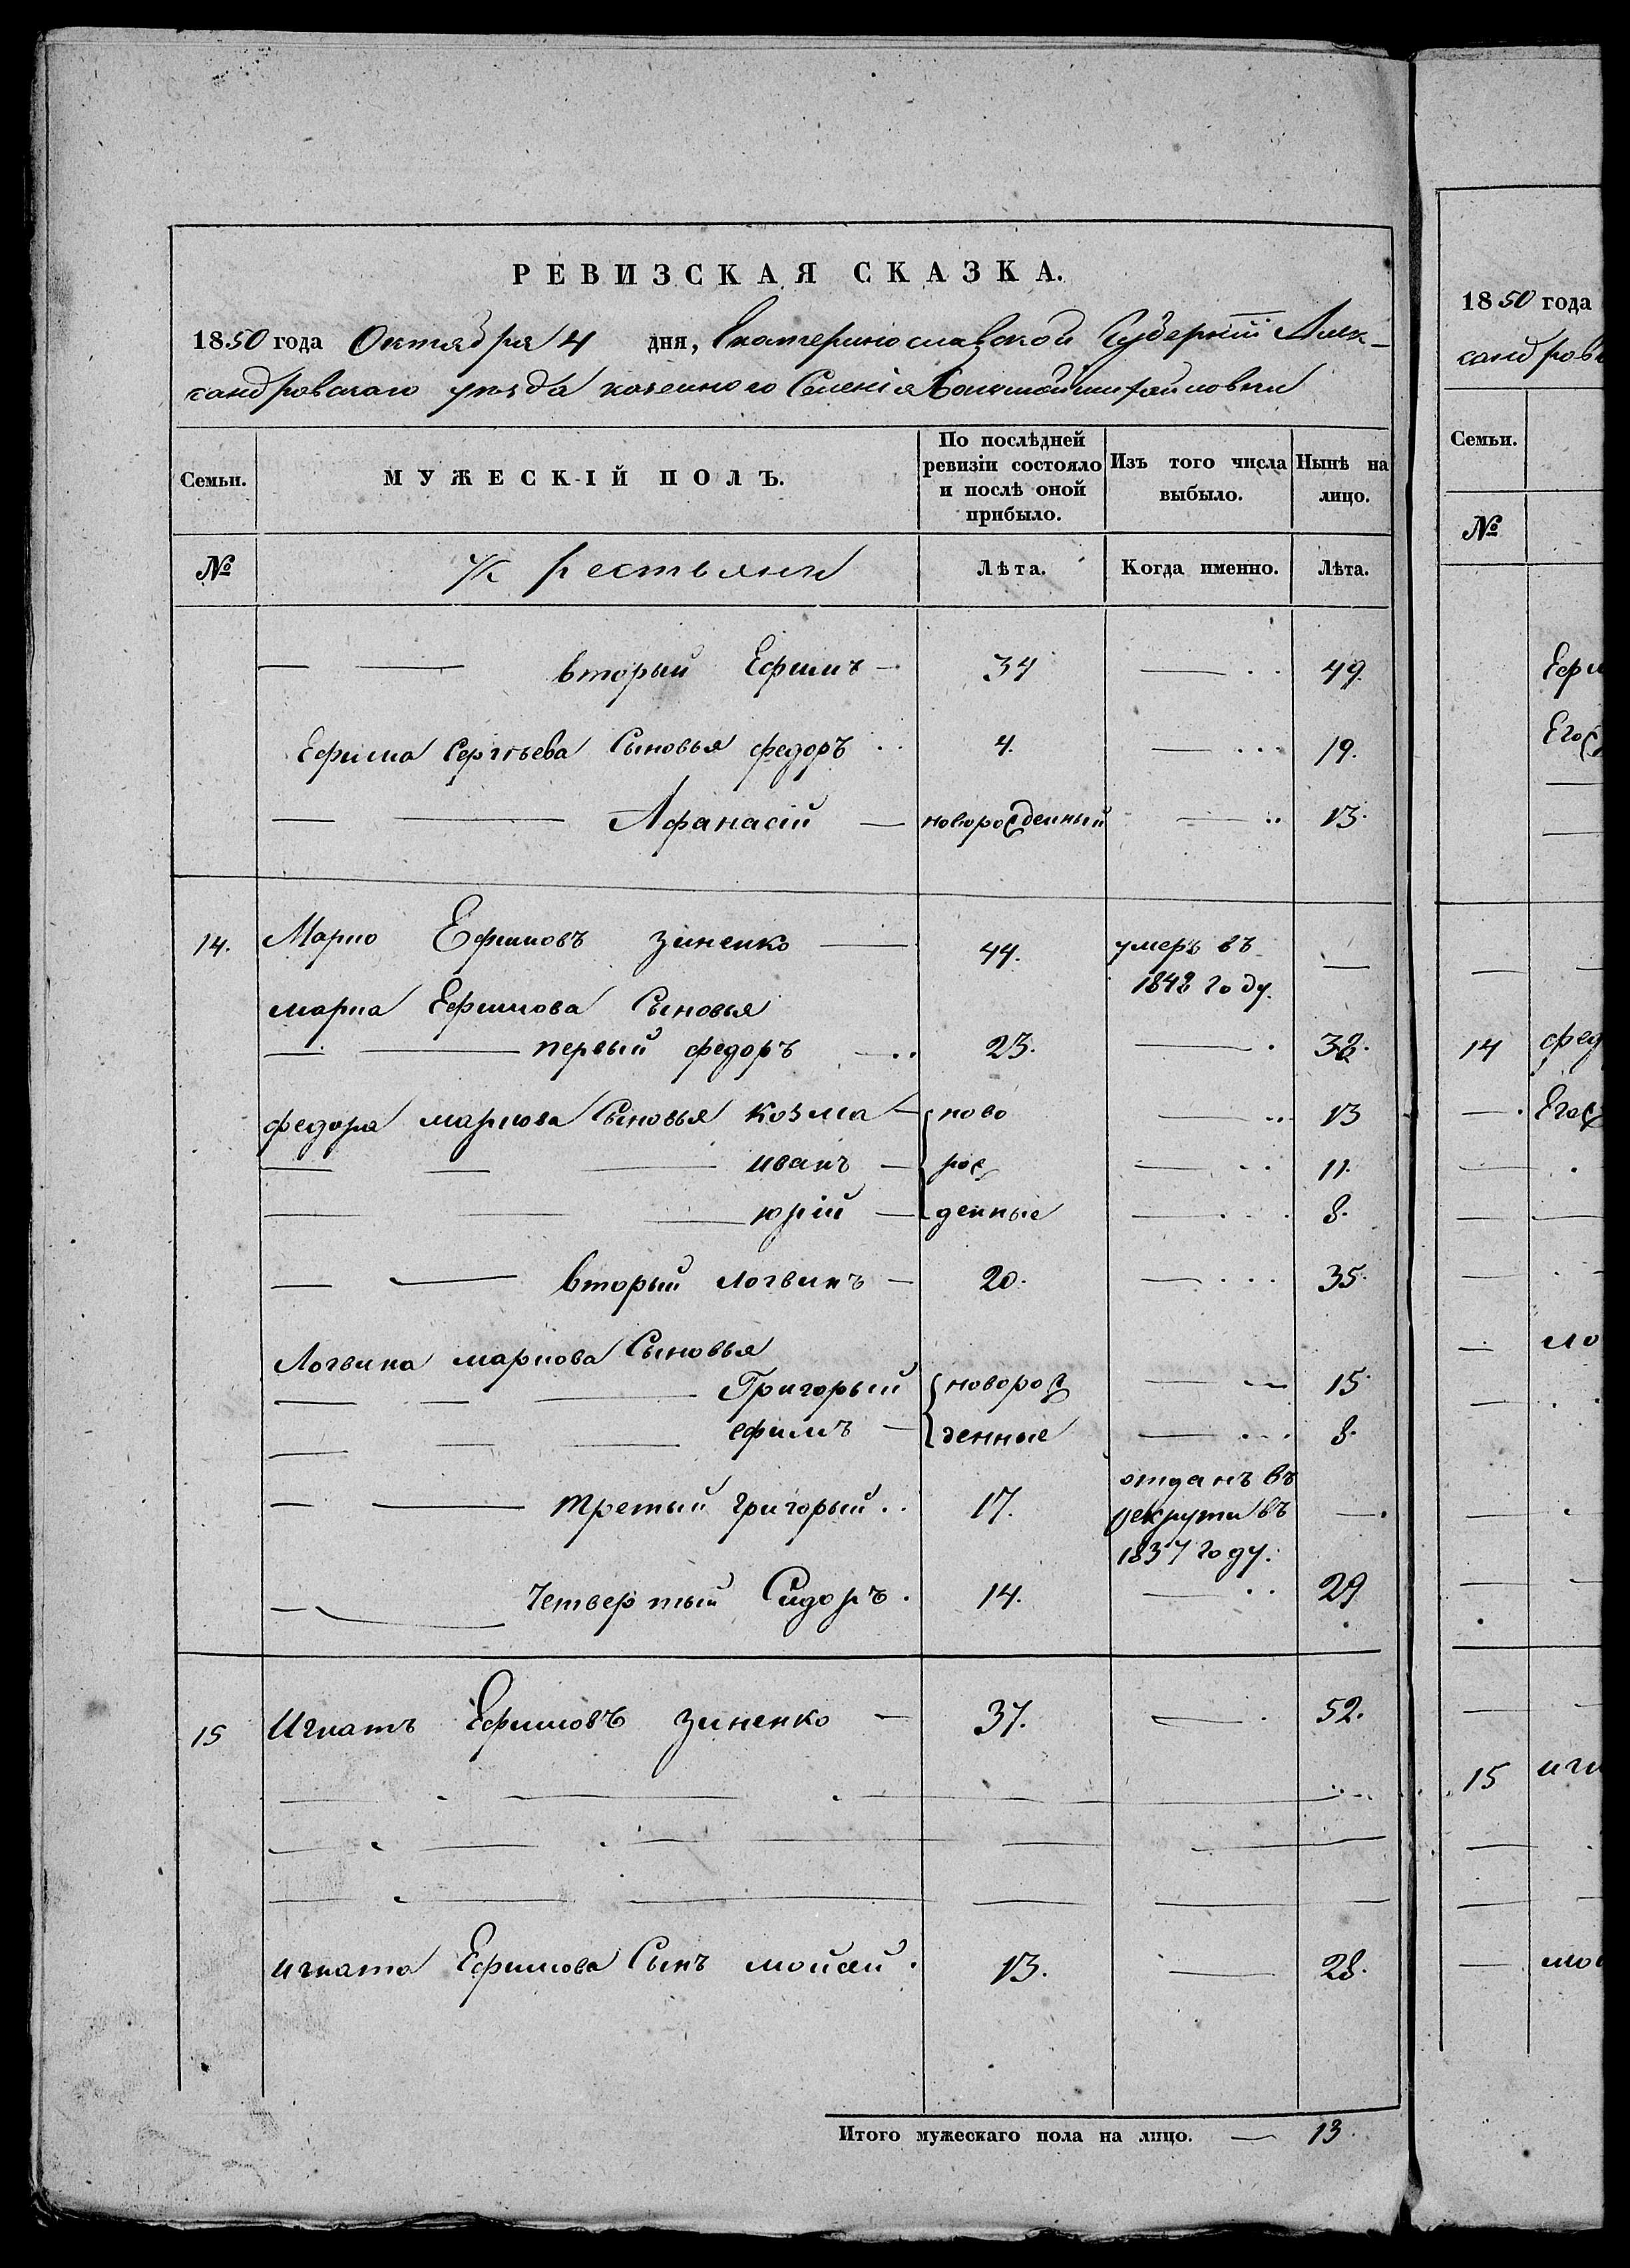 РЕВИЗСКАЯ СКАЗКА.
1850 года Октября 4 дня, Екатеринославской Губерніи Алек-
сандровскаго уезда казенного Селенія Большой михайловки
Семьи. МУЖЕСКІЙ ПОЛЪ. По послѣдней ревизіи состояло и послѣ оной прибыло. Изъ того числа выбыло. Нынѣ на лицо.
№ Крестьяни Лѣта. Когда именно. Лѣта.
вторый Ефимъ 34 49.
Ефима Сергѣева Сыновья федоръ 4. 19.
Афанасій новорожденный 13.
14. Марко Ефимовъ зиненко 44. умеръ въ 1848 году.
марка Ефимова Сыновья
первый федоръ 23. 38.
федора маркова Сыновья козма ново 13
иванъ рож 11.
юрій денные 8.
вторый логвинъ 20. 35.
Логвина маркова Сыновья
Григорый новорож 15.
ефимъ денные 8.
третый григорый 17. отданъ въ рекруты въ 1837 году.
Четвертый Сидоръ 14. 29
15 Игнатъ Ефимовъ зиненко 37. 52.
игната Ефимова Сынъ мойсей 13. 28.
Итого мужескаго пола на лицо. 13.
1850 года
сандровс
Семьи.
№
Ефи
Его
14 фед
Его
ло
15 игн
мой